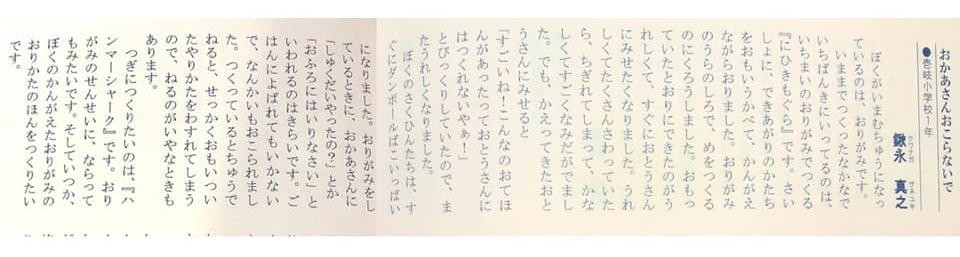 おかあさんおこらないで
●壱岐小学校1年
鍬永 真之
クワナガ サネユキ
ぼくがいまむちゅうになっ
ているのは、おりがみです。
いままでつくったなかで
いちばんきにいってるのは、
『にひきもぐら』です。さい
いちまいのおりがみでつくる
しょに、できあがりのかたち
をおもいうかべて、かんがえ
ながらおりました。おりがみ
のうらのしろで、めをつくる
のにくろうしました。おもっ
ていたとおりにできたのがう
れしくて、すぐにおとうさん
にみせたくなりました。うれ
しくてたくさんさわっていた
ら、ちぎれてしまって、かな
しくてすごくなみだがでまし
た。でも、かえってきたおと
うさんにみせると
「すごいね!こんなのおてほ
んがあったっておとうさんに
はつくれないやぁ!」
とびっくりしていたので、ま
たうれしくなりました。
ぼくのさくひんたちは、す
ぐにダンボールばこいっぱい
になりました。おりがみをし
ているときに、おかあさんに
「しゅくだいやったの?」とか
「おふろにはいりなさい」と
いわれるのはきらいです。ご
はんによばれてもいかない
で、なんかいもおこられまし
た。つくっているとちゅうで
ねると、せっかくおもいつい
たやりかたをわすれてしまう
ので、ねるのがいやなときも
あります。
つぎにつくりたいのは、『ハ
ンマーシャーク』です。おり
がみのせんせいに、ならって
もみたいです。そしていつか、
ぼくのかんがえたおりがみの
おりかたのほんをつくりたい
です。